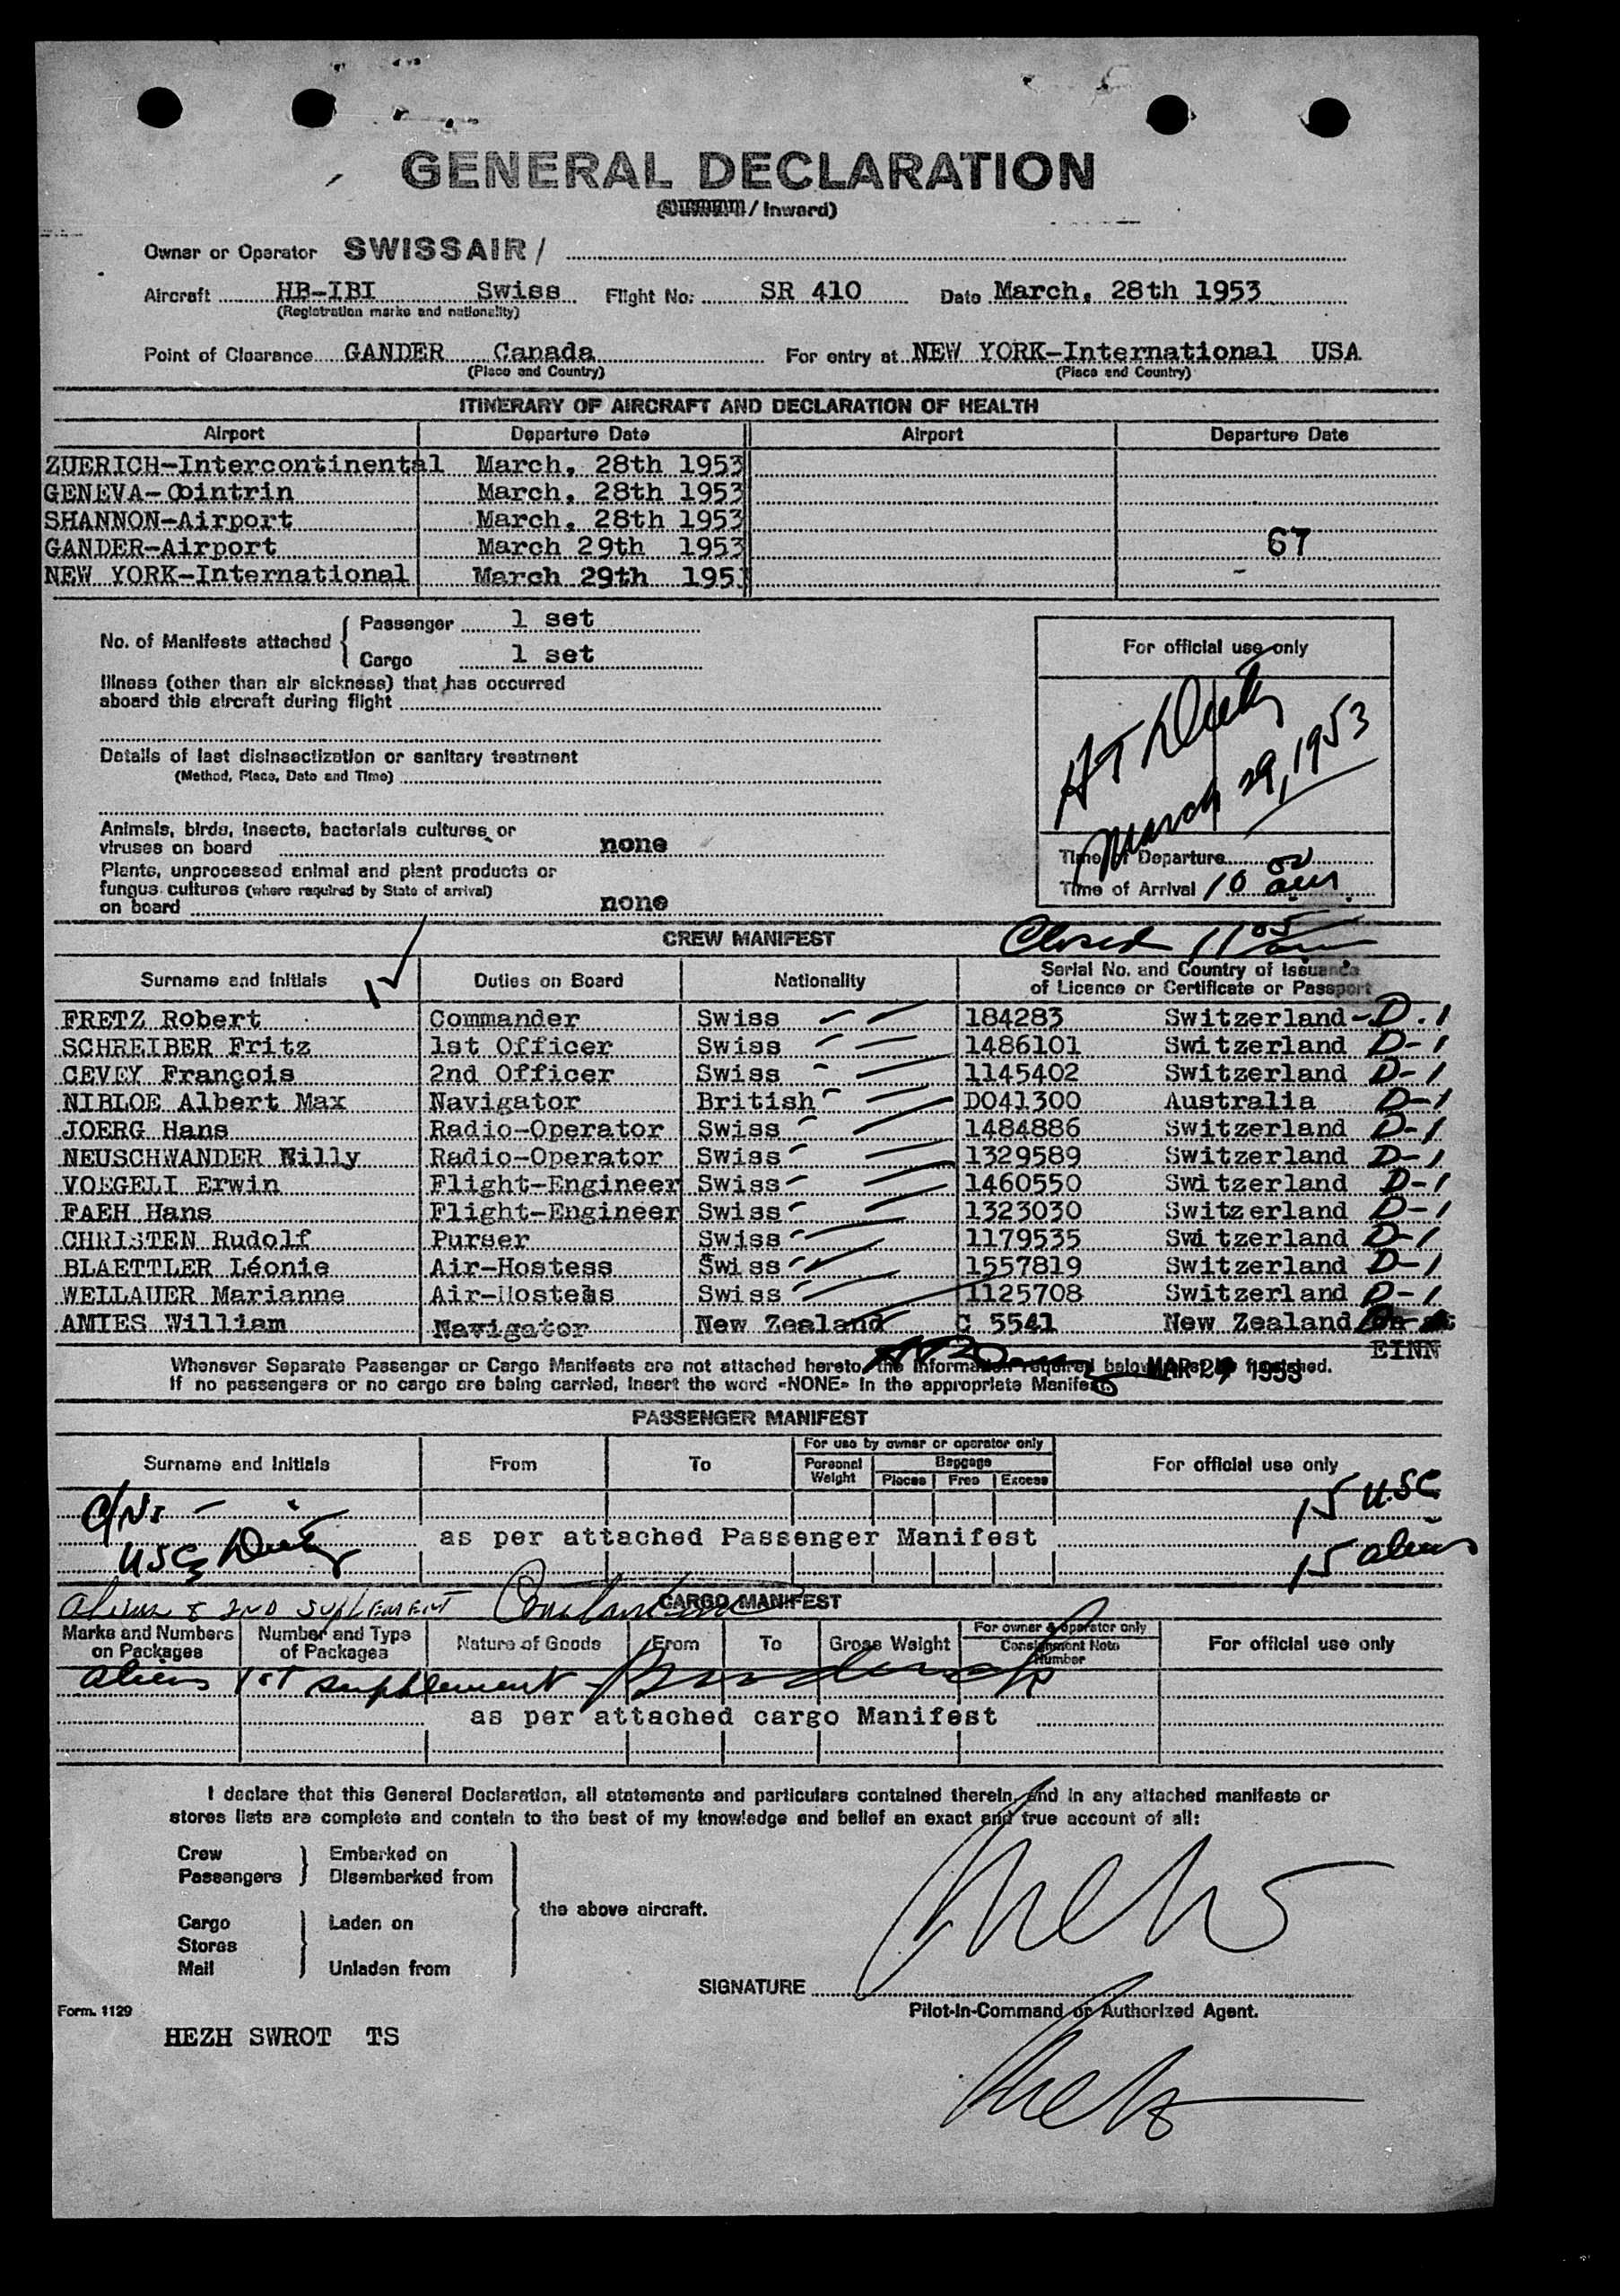 GENERAL DECLARATION
/ Inward)
Owner or Operator SWISSAIR /
Aircraft HB-IBI Swiss Flight No: SR 410 Date March, 28th 1953
(Registration marks and nationality)
Point of Clearance GANDER Canada For entry at NEW YORK-International USA
(Place and Country) (Place and Country)
ITINERARY OF AIRCRAFT AND DECLARATION OF HEALTH
Airport Departure Date Airport Departure Date
ZUERICH-Intercontinental March, 28th 1953
GENEVA-Cointrin March, 28th 1953
SHANNON-Airport March, 28th 1953
GANDER-Airport March 29th 1953 67
NEW YORK-International March 29th 1953
No. of Manifests attached Passenger 1 set
Cargo 1 set
For official use only
Illness (other than air sickness) that has occurred
aboard this aircraft during flight
Details of last disinsectization or sanitary treatment
(Method, Place, Date and Time)
March 29, 1953
Animals, birds, insects, bacterials cultures or
viruses on board none
Time of Departure
Plants, unprocessed animal and plant products or
fungus cultures (where required by State of arrival)
on board none
Time of Arrival 10 00 am
CREW MANIFEST
Closed 11 05 am
Surname and Initials Duties on Board Nationality Serial No. and Country of Issuance
of Licence or Certificate or Passport
FRETZ Robert Commander Swiss 184283 Switzerland - D-1
SCHREIBER Fritz 1st Officer Swiss 1486101 Switzerland D-1
CEVEY François 2nd Officer Swiss 1145402 Switzerland D-1
NIBLOE Albert Max Navigator British DO41300 Australia D-1
JOERG Hans Radio-Operator Swiss 1484886 Switzerland D-1
NEUSCHWANDER Willy Radio-Operator Swiss 1329589 Switzerland D-1
VOEGELI Erwin Flight-Engineer Swiss 1460550 Switzerland D-1
FAEH Hans Flight-Engineer Swiss 1323030 Switzerland D-1
CHRISTEN Rudolf Purser Swiss 1179535 Switzerland D-1
BLAETTLER Léonie Air-Hostess Swiss 1557819 Switzerland D-1
WEILAUER Marianne Air-Hostess Swiss 1125708 Switzerland D-1
AMIES William Navigator New Zealand C 5541 New Zealand
EINN
Whenever Separate Passenger or Cargo Manifests are not attached hereto, the information required below must be furnished.
MAR 29 1953
If no passengers or no cargo are being carried, insert the word «NONE» in the appropriate Manifest.
PASSENGER MANIFEST
Surname and Initials From To For use by owner or operator only For official use only
Personal Weight Baggage
Pieces Free Excess
15 USC
as per attached Passenger Manifest
USCs
15 aliens
aliens & 2ND SUPLEMENT
CARGO MANIFEST
Marks and Numbers on Packages Number and Type of Packages Nature of Goods From To Gross Weight For owner & operator only Consignment Note Number For official use only
aliens 1st supplement
as per attached cargo Manifest
I declare that this General Declaration, all statements and particulars contained therein, and in any attached manifests or
stores lists are complete and contain to the best of my knowledge and belief an exact and true account of all:
Crew Embarked on
Passengers Disembarked from
the above aircraft.
Cargo Laden on
Stores
Mail Unladen from
SIGNATURE
Form. 1129 Pilot-in-Command or Authorized Agent.
HEZH SWROT TS